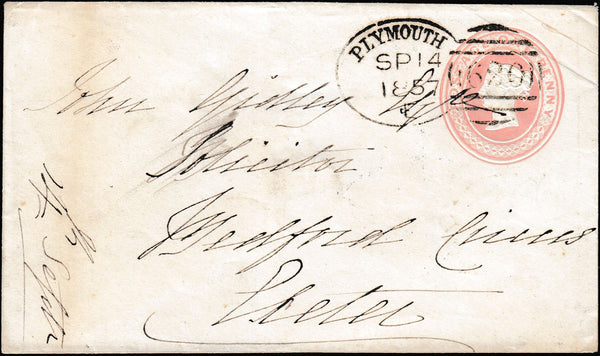 PLYMOUTH
SP 14
1857
620
PENNY
Jno Gidley Esqr
Solicitor
Bedford Circus
Exeter
Sept